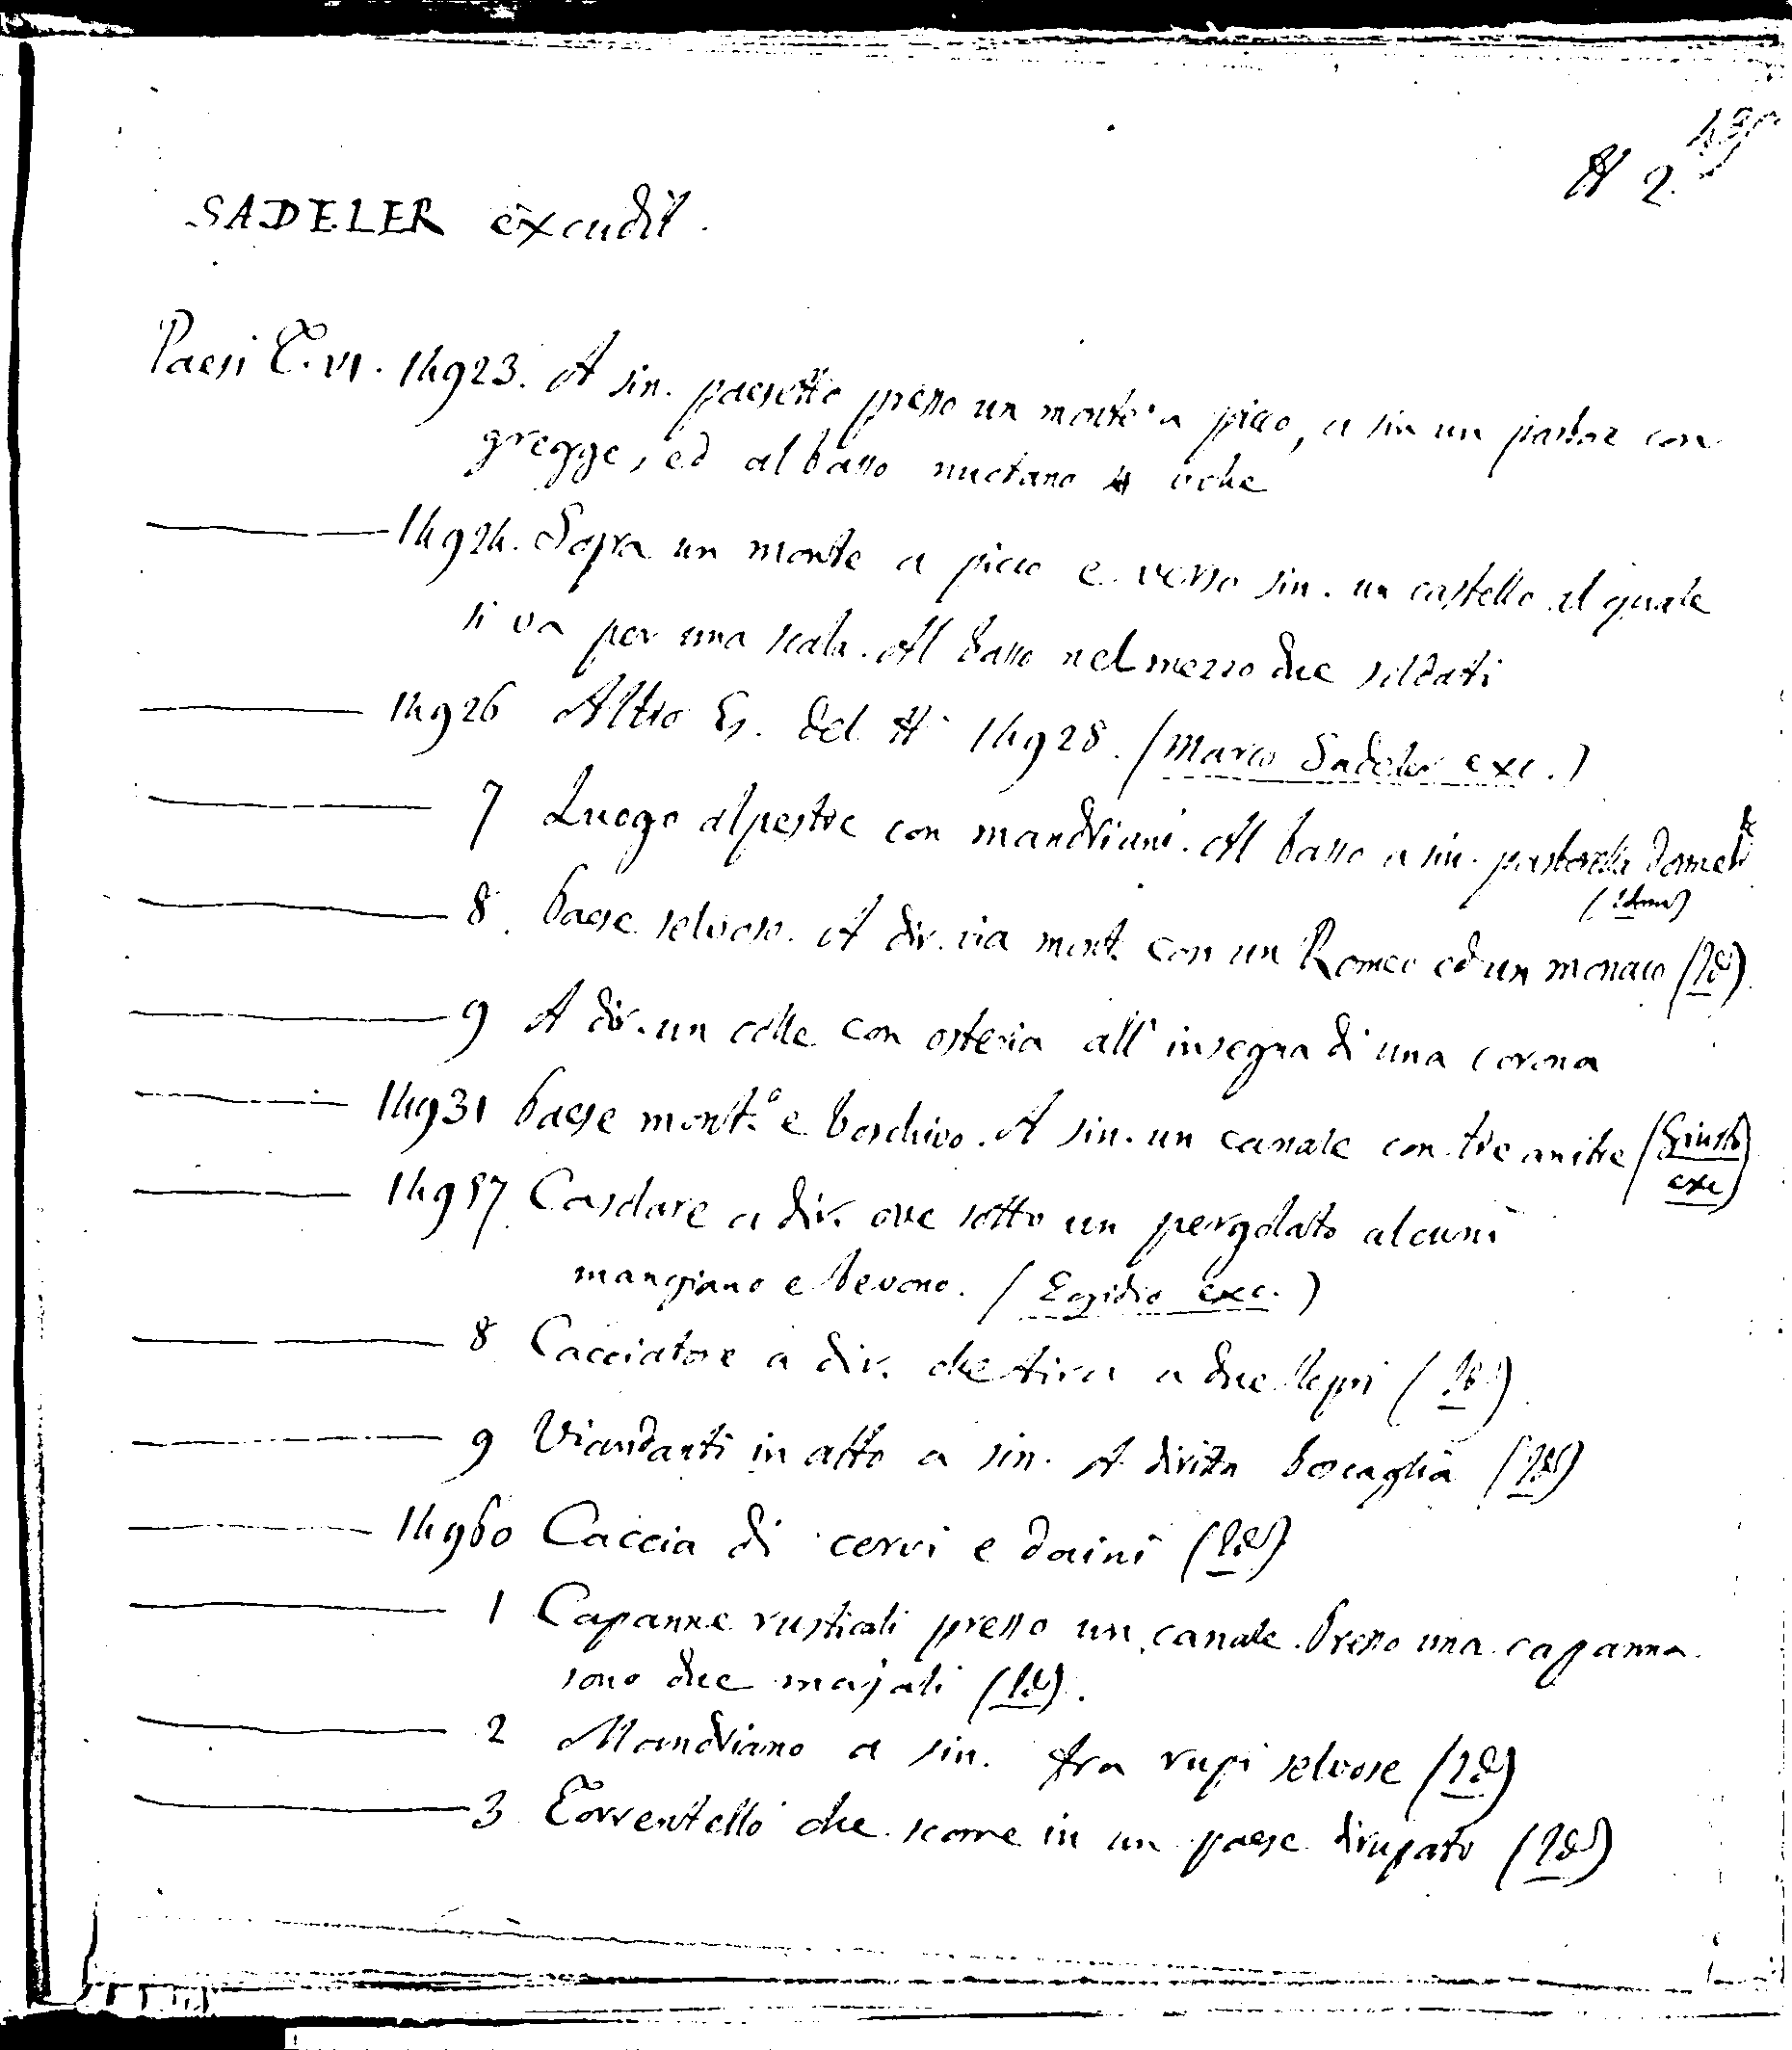 N 2.
SADELER excudit.
Paesi T. VI. 14923. A sin. paesetto presso un monte a picco, a sin un pastore con
gregge, ed al basso nuotano 4 oche
14924. Sopra un monte a picco e verso sin. un castello al quale
si va per una scala. Al basso nel mezzo due soldati
14926 Altro Es. del N 14928. (Marco Sadeler exc.)
7 Luogo alpestre con mandriani. Al basso a sin. pastorella
(Idem)
8. Paese selvoso. A dir. via mont. con un Romeo ed un monaco (Id)
9 A dir. un colle con osteria all' insegna di una corona
14931 Paese mont.o e boschivo. A sin. un canale con tre anitre (Giusto
exc)
14957 Casolare a dir. ove sotto un pergolato alcuni
mangiano e bevono. (Egidio exc.)
8 Cacciatore a dir. che tira a due lepri (Id)
9 Viandanti in alto a sin. A diritta boscaglia (Id)
14960 Caccia di cervi e daini (Id)
1 Capanne rusticali presso un canale. Presso una capanna
sono due majali (Id).
2 Mandriano a sin. fra rupi selvose (Id)
3 Torrentello che scorre in un paese dirupato (Id)